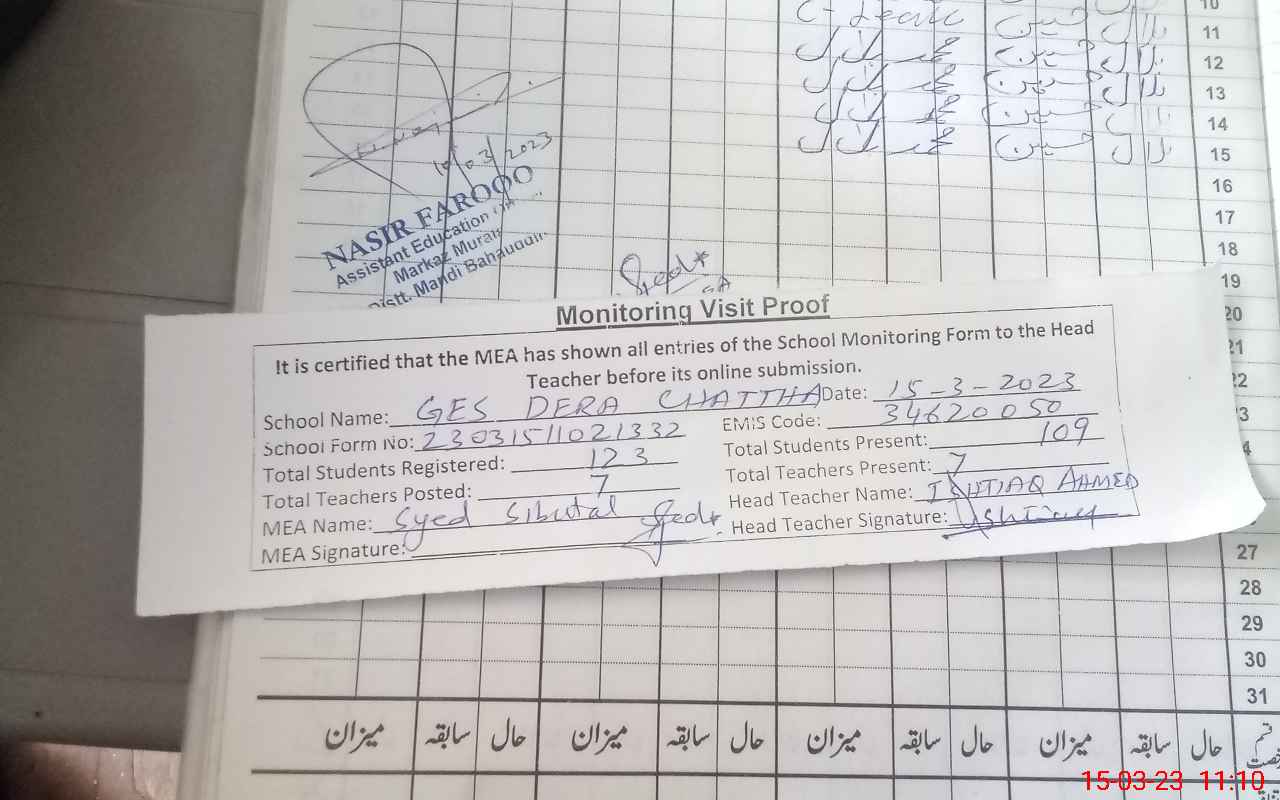 10
C-Leave
11
محمد بلال حسین بلال 12
محمد بلال حسین بلال 13
محمد بلال حسین 14
محمد بلال حسین بلال 15
16
17
18
19
20
21
22
10/03/2023
NASIR FAROOQ
Assistant Education
Markaz Murala
Distt. Mandi Bahauddin
Monitoring Visit Proof
It is certified that the MEA has shown all entries of the School Monitoring Form to the Head
Teacher before its online submission.
School Name: GES DERA CHATTHA Date: 15-3-2023
School Form No: 23031511021332 EMIS Code: 34620050
Total Students Registered: 123 Total Students Present: 109
Total Teachers Posted: 7 Total Teachers Present: 7
MEA Name: Syed Sibutal Head Teacher Name: ISHTIAQ AHMED
MEA Signature: Head Teacher Signature: Ishtiaq
27
28
29
30
31
حال سابقہ میزان حال سابقہ میزان حال سابقہ میزان حال سابقہ میزان
15-03-23 11:10